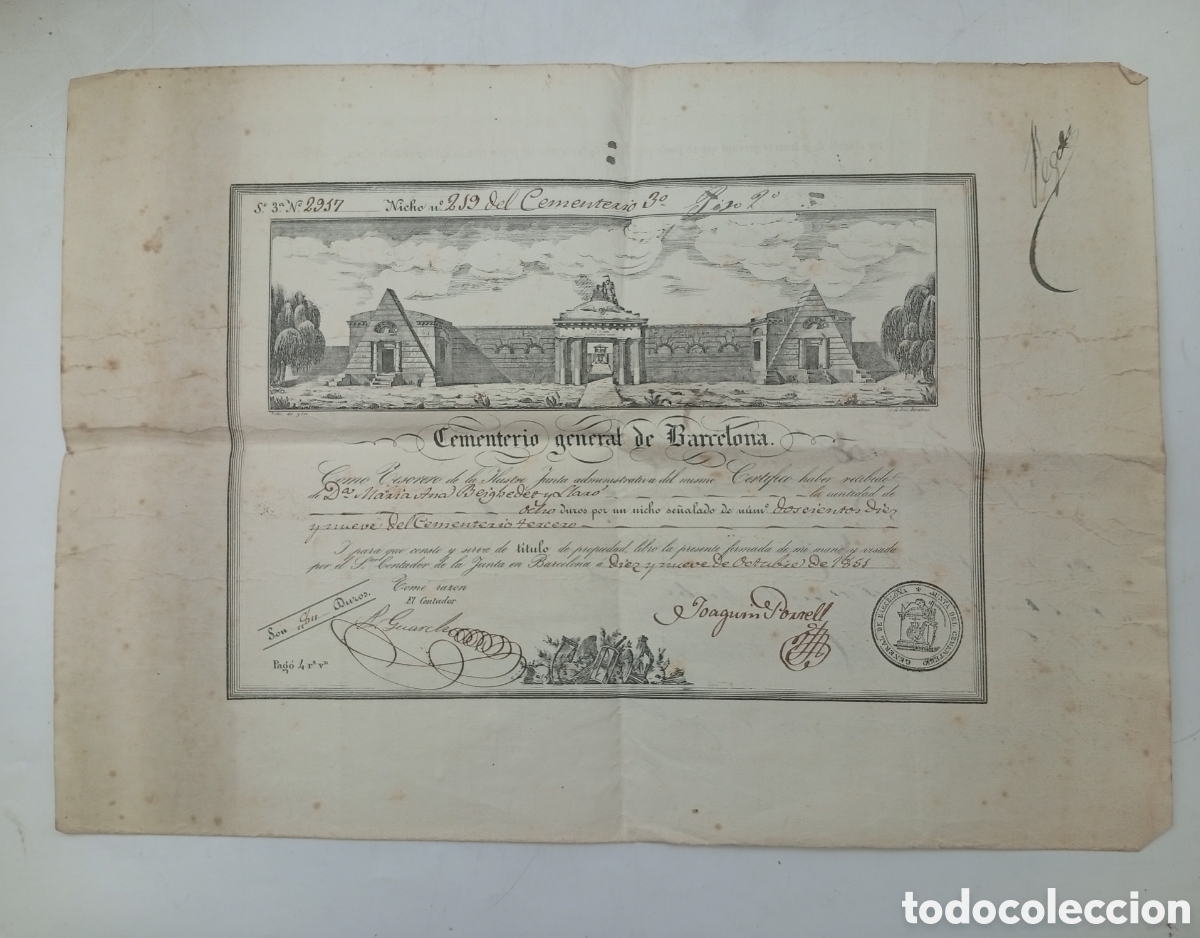 Sº 3ª Nº 2917 Nicho nº 219 del Cementerio 3º Piso 2º
Cementerio general de Barcelona.
Como Tesorero de la Ilustre Junta administrativa del mismo Certifico haber recibido
de Dª Maria Ana y la cantidad de
ocho duros por un nicho señalado de númº doscientos diez
y nueve del Cementerio tercero
Y para que conste y sirva de titulo de propiedad, libro la presente firmada de mi mano y visada
por el Sor Contador de la Junta en Barcelona á diez y nueve de Octubre de 1851
Tomé razon
El Contador
Son Duros.
Joaquin
Pagó 4 rs vn
JUNTA DEL CEMENTERIO GENERAL DE BARCELONA
todocoleccion